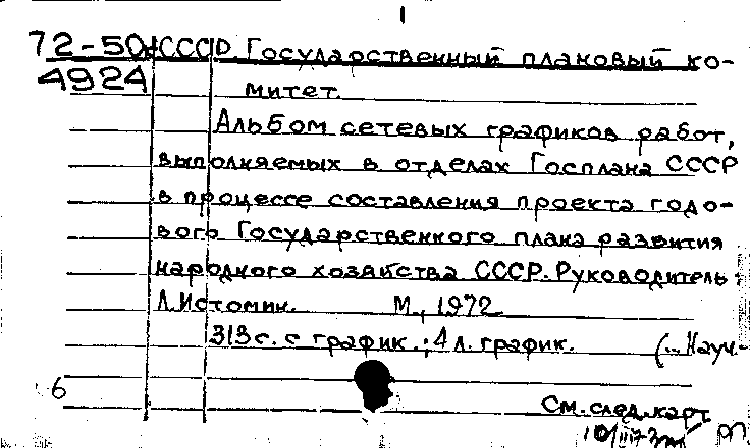 72-50
4924
СССР. Государственный плановый ко-
митет.
Альбом сетевых графиков работ,
выполняемых в отделах Госплана СССР
в процессе составления проекта годо-
вого Государственного плана развития
народного хозяйства СССР. Руководитель
Л. Истомин. М., 1972.
313 с. с график.; 4 л. график. (... Науч.-
6
См. след. карт.